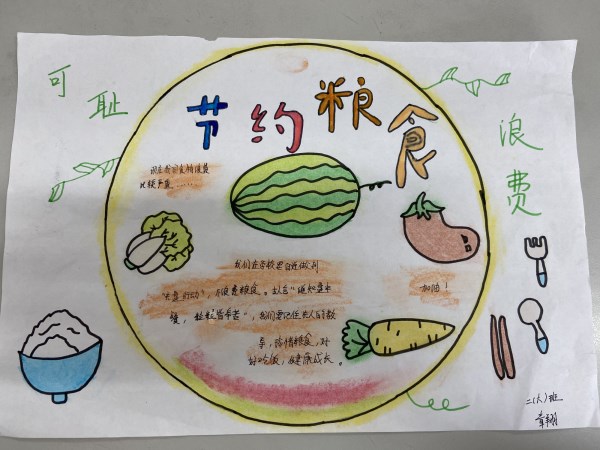 节约粮食
可耻
浪费
现在我们食物浪费
比较严重……
我们在学校里也做到
"光盘行动",不浪费粮食。古人云"谁知盘中
餐,粒粒皆辛苦",我们要记住古人的教
导,珍惜粮食,好
好吃饭,健康成长。
加油!
二(六)班